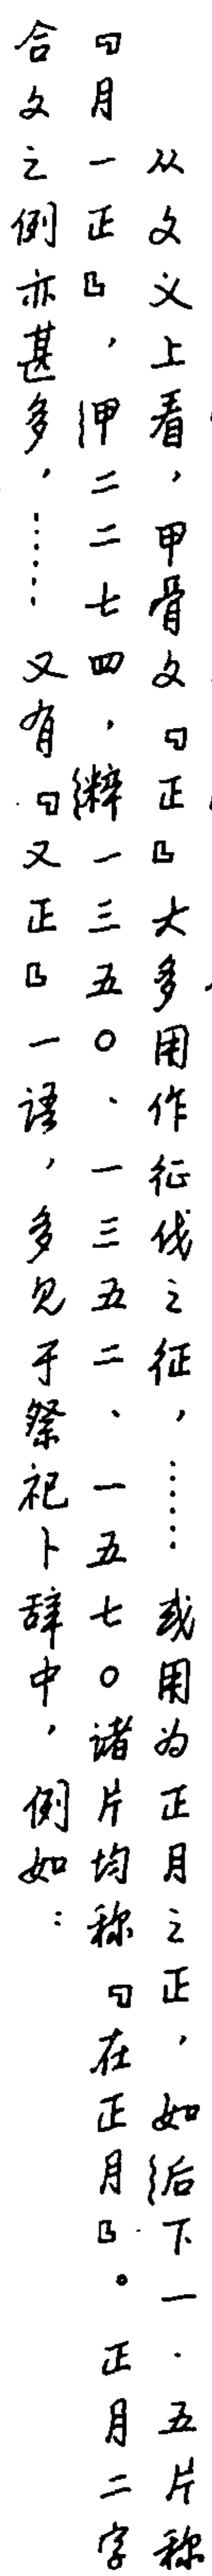 从文义上看，甲骨文『正』大多用作征伐之征，……或用为正月之正，如后下一·五片称
『月一正』，甲二二七四，粹一三五〇、一三五二、一五七〇诸片均称『在正月』。正月二字
合文之例亦甚多，……又有『又正』一语，多见于祭祀卜辞中，例如：